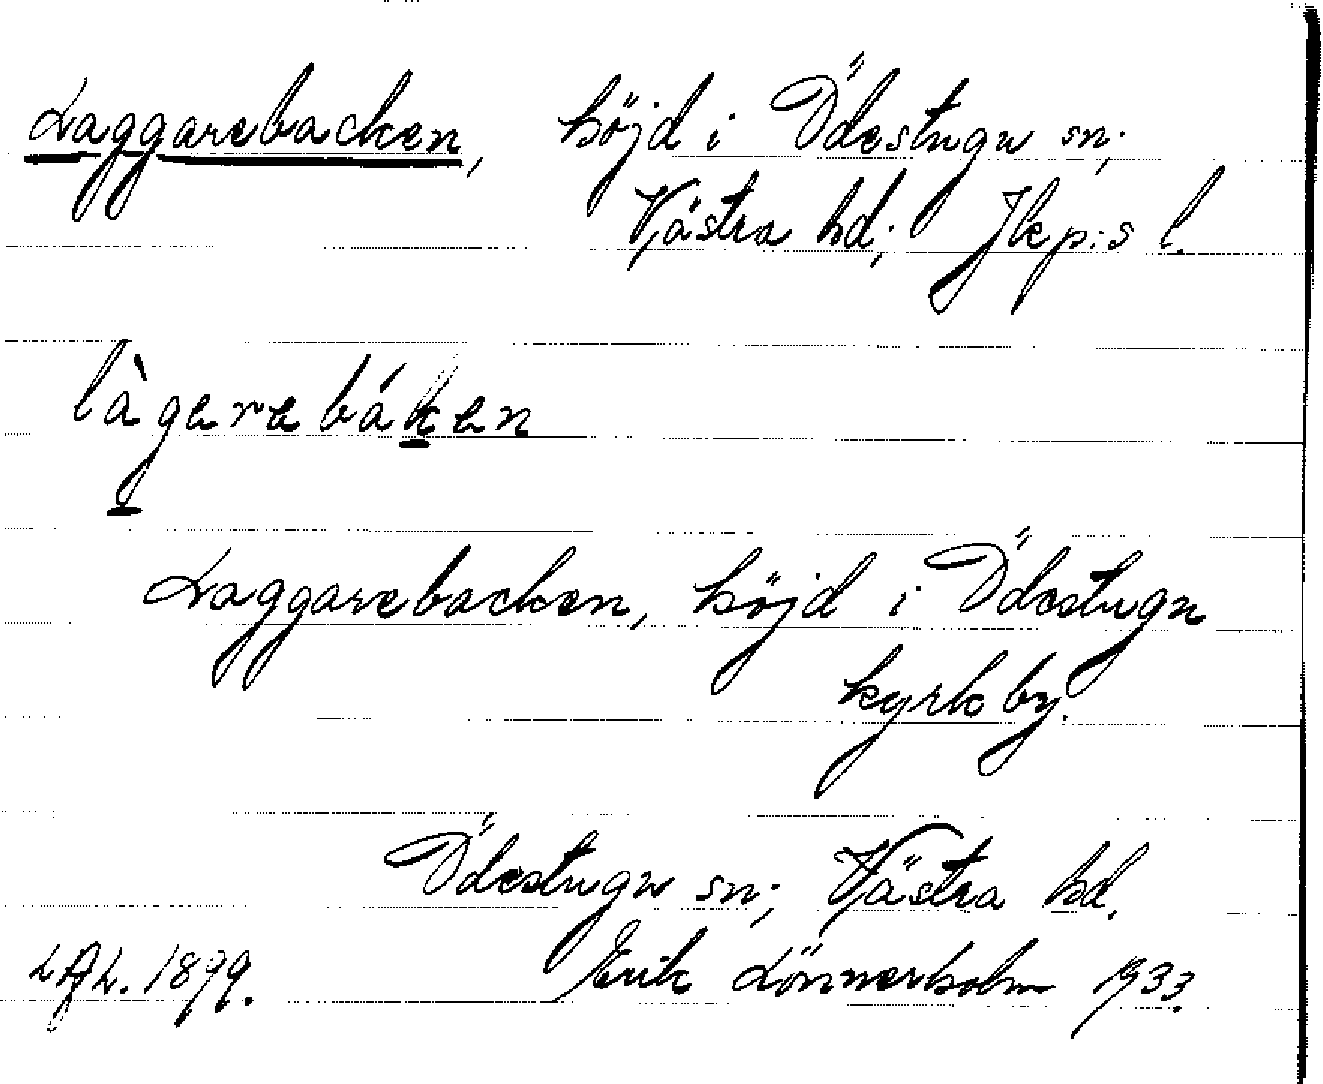 Laggarebacken, höjd i Ödestugu sn;
Västra hd; Jkp:s l.
làgarebáken
Laggarebacken, höjd i Ödestugu
kyrkby.
Ödestugu sn; Västra hd.
LAL. 1899. Erik Lönnerholm 1933.